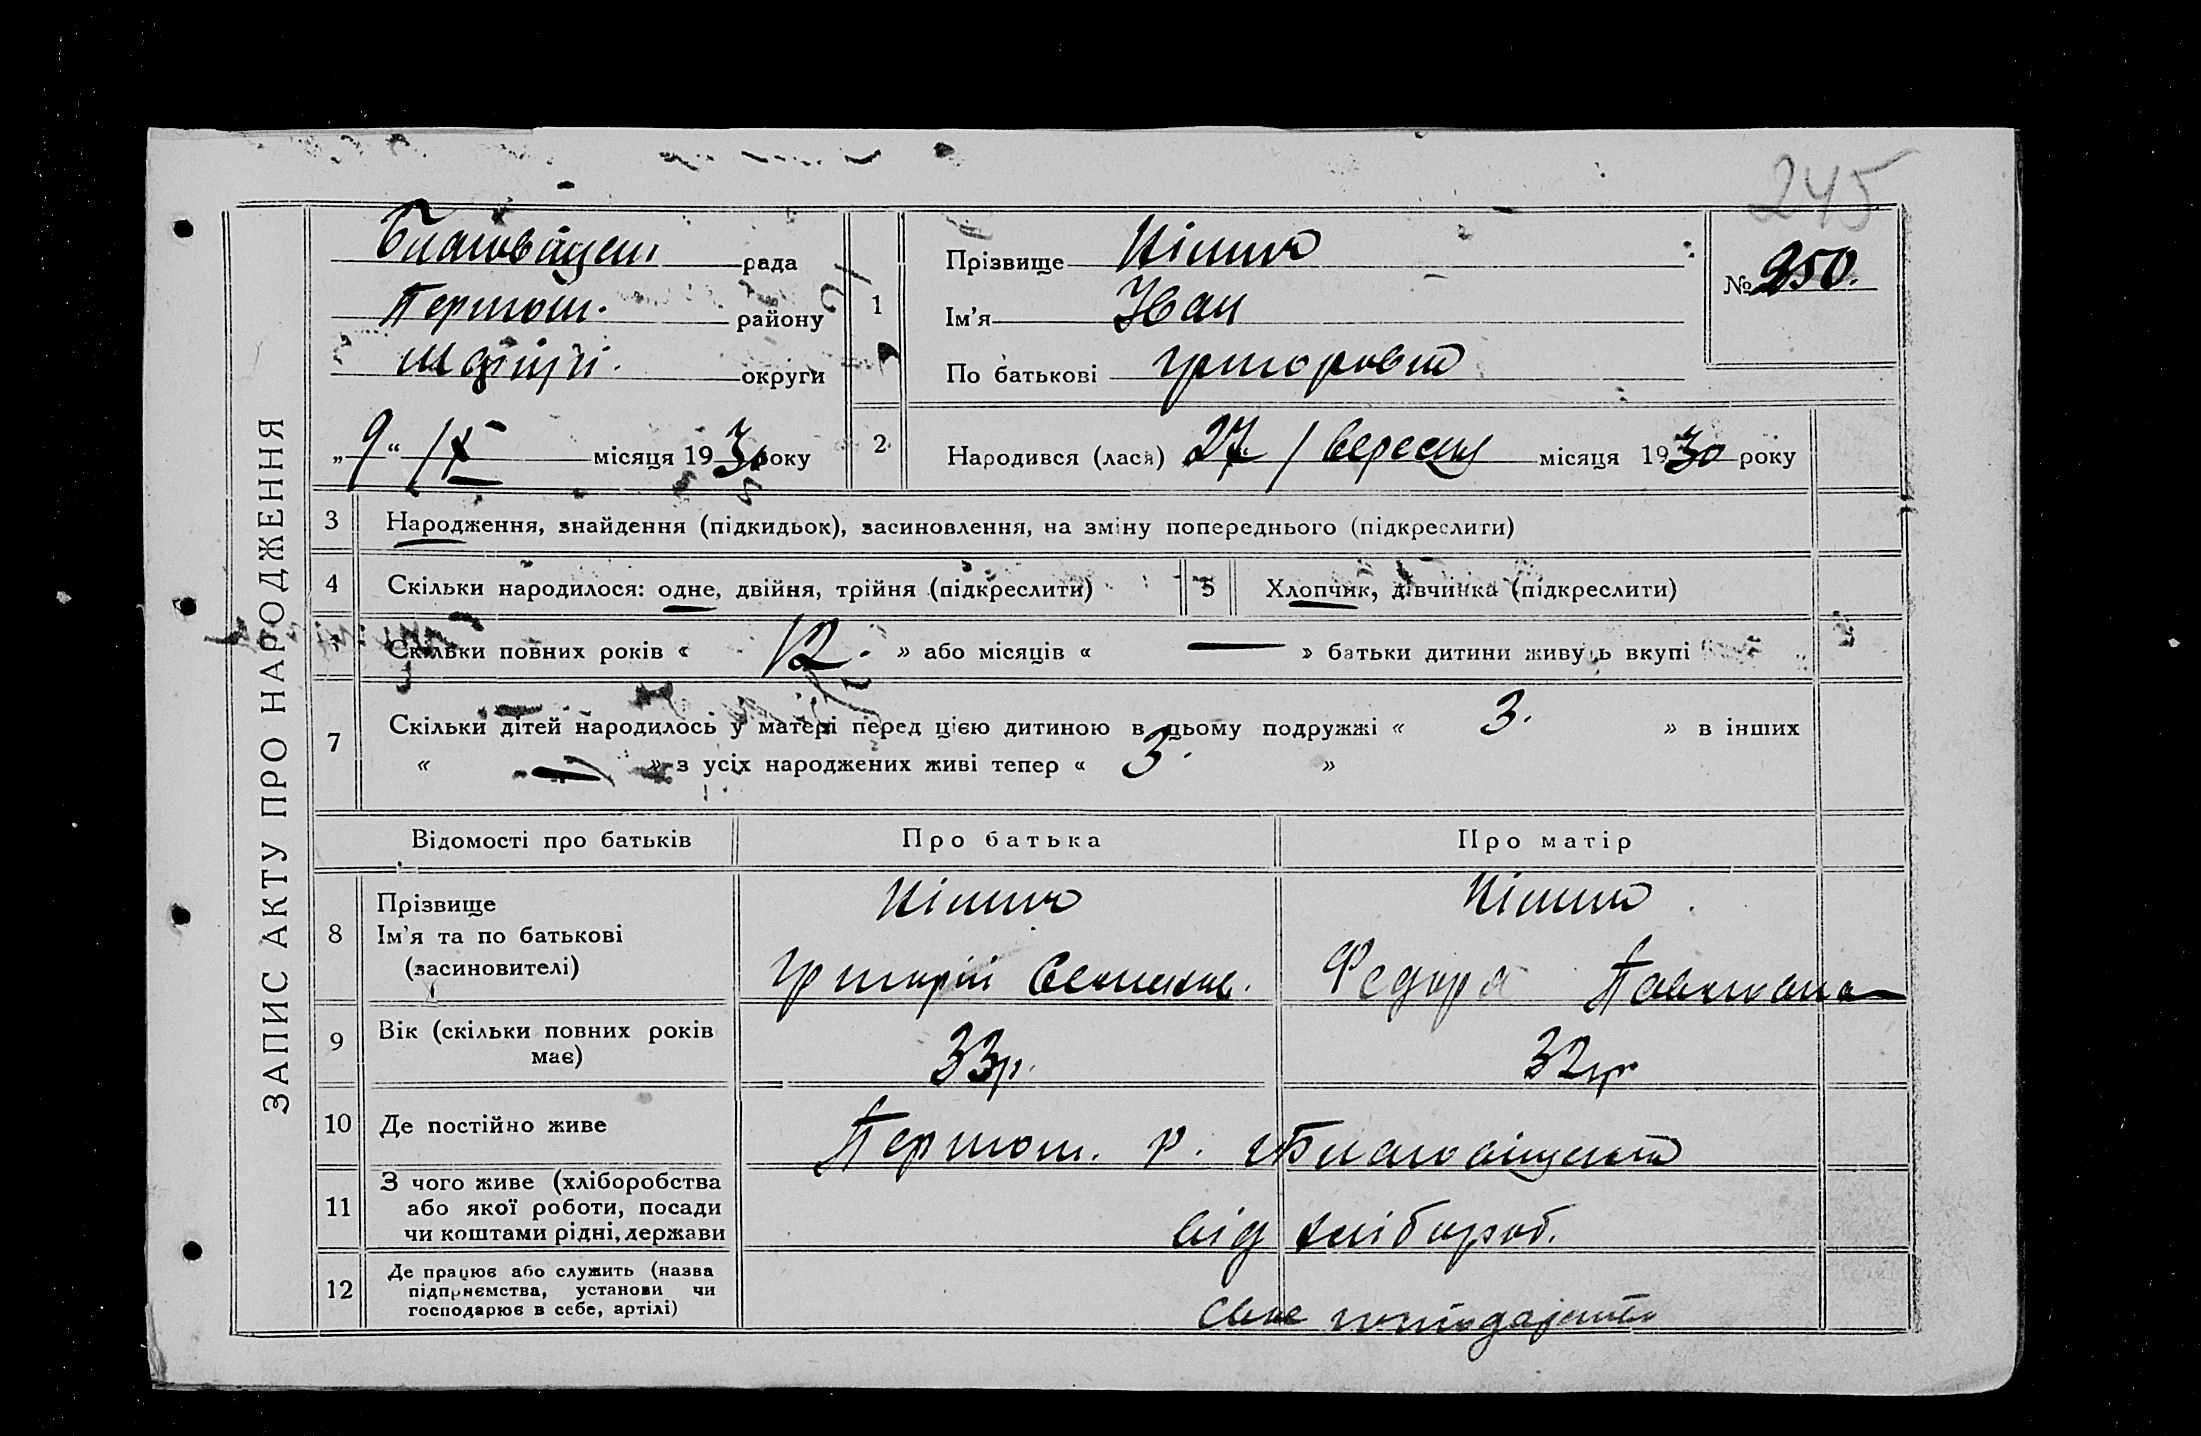 245
Благовіщен. рада
№ 250.
району
округи
Прізвище
Ім'я Іван
По батькові Григоров
„9“ IX місяця 1930 року
1
2 Народився (лася) 27 / вересня місяця 1930 року
ЗАПИС АКТУ ПРО НАРОДЖЕННЯ
3 Народження, знайдення (підкидьок), засиновлення, на зміну попереднього (підкреслити)
4 Скільки народилося: одне, двійня, трійня (підкреслити) 5 Хлопчик, дівчинка (підкреслити)
Скільки повних років « 12. » або місяців « — » батьки дитини живуть вкупі
7 Скільки дітей народилось у матері перед цією дитиною в цьому подружжі « 3. » в інших
« — » з усіх народжених живі тепер « 3. »
Відомості про батьків Про батька Про матір
8 Прізвище
Ім'я та по батькові
(засиновителі)
Григорій
Федора Павловна
9 Вік (скільки повних років
має)
33р. 32р
10 Де постійно живе
р.
11 З чого живе (хліборобства
або якої роботи, посади
чи коштами рідні, держави
від хлібороб.
12 Де працює або служить (назва
підприємства, установи чи
господарює в себе, артілі)
своє господарство